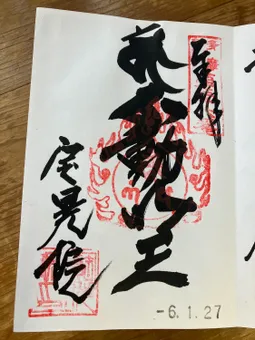 奉拝
不動明王
宝晃院
-6.1.27